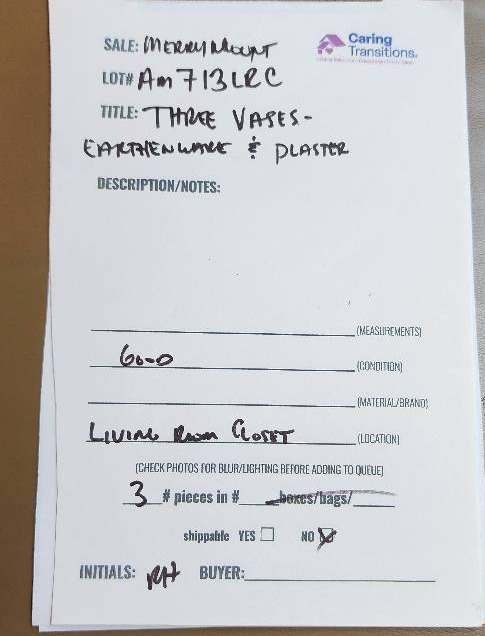 SALE: MERRYMOUNT
Caring
Transitions.
LOT# Am713LRC
TITLE: THREE VASES-
EARTHENWARE & PLASTER
DESCRIPTION/NOTES:
(MEASUREMENTS)
GOOD (CONDITION)
(MATERIAL/BRAND)
LIVING ROOM CLOSET (LOCATION)
(CHECK PHOTOS FOR BLUR/LIGHTING BEFORE ADDING TO QUEUE)
3 # pieces in # boxes/bags/
shippable YES NO
INITIALS: RH BUYER: